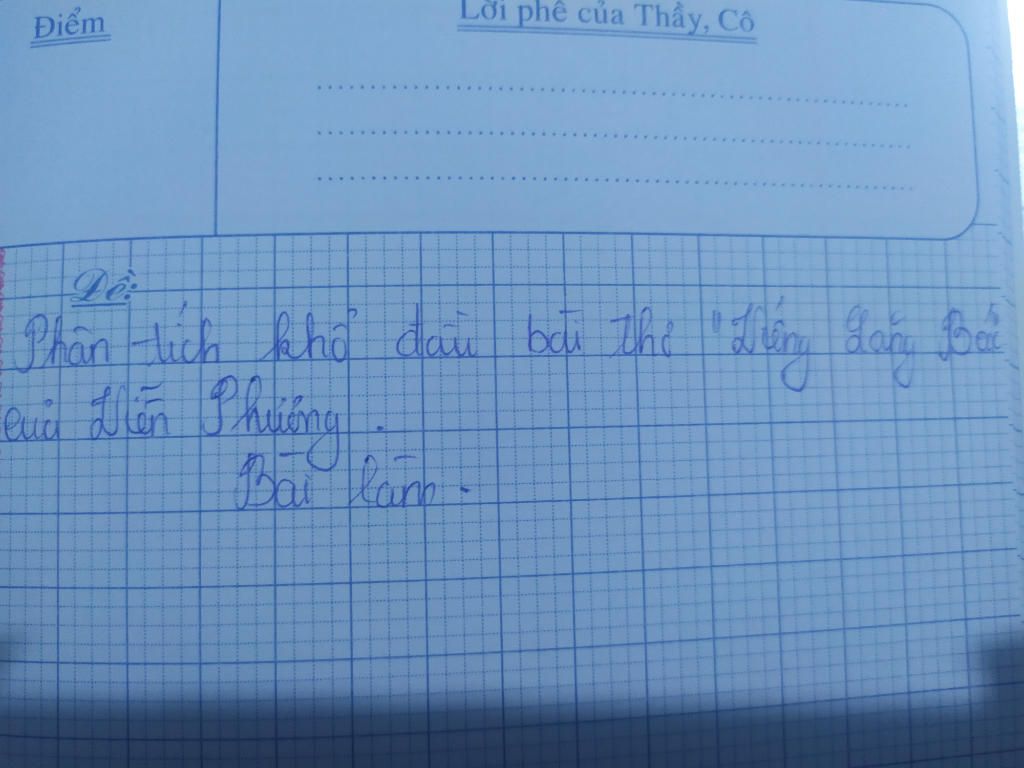 Điểm
Lời phê của Thầy, Cô
Đề:
Phân tích khổ đầu bài thơ "Viếng Lăng Bác
của Viễn Phương.
Bài làm.